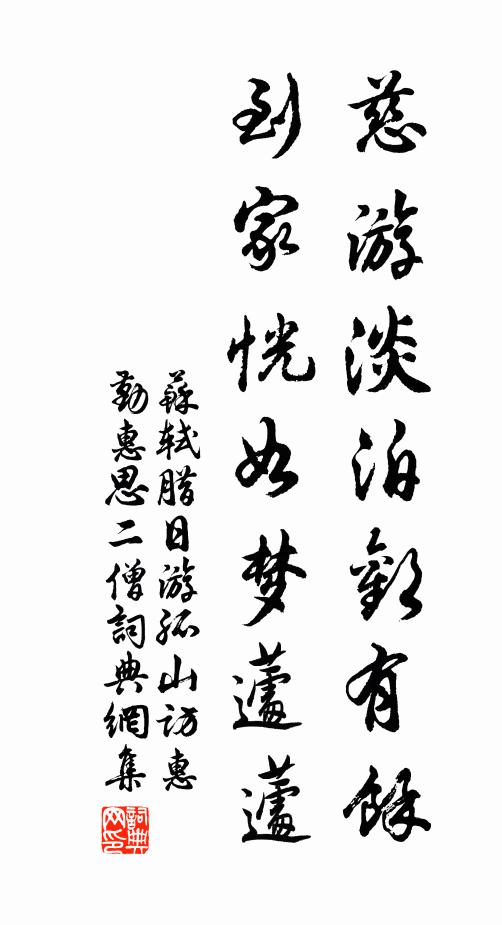 慈游淡泊歡有餘
到家恍如梦蘧蘧
蘇軾腊日游孤山訪惠
勤惠思二僧詞典網集
詞典网印